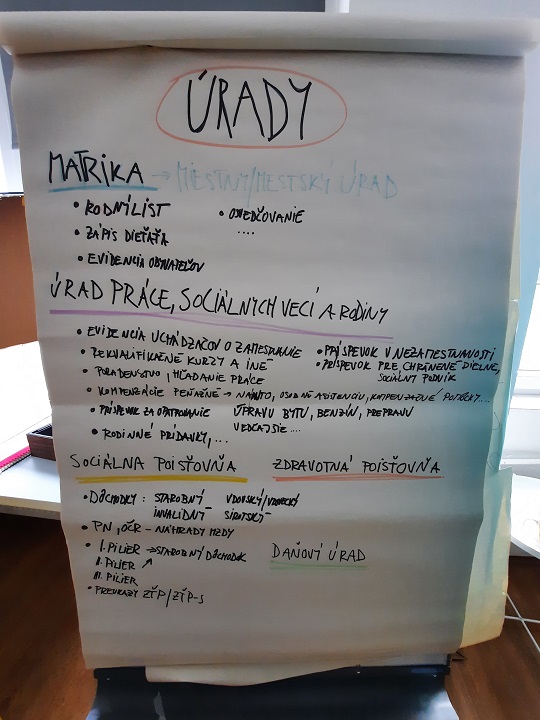 ÚRADY
MATRIKA → MIESTNY/MESTSKÝ ÚRAD
• RODNÝ LIST
• ZÁPIS DIEŤAŤA
• EVIDENCIA OBYVATEĽOV
• OSVEDČOVANIE
....
ÚRAD PRÁCE, SOCIÁLNYCH VECÍ A RODINY
• EVIDENCIA UCHÁDZAČOV O ZAMESTNANIE
• REKVALIFIKAČNÉ KURZY A INÉ
• PORADENSTVO, HĽADANIE PRÁCE
• KOMPENZÁCIE PEŇAŽNÉ → NA AUTO, OSOBNÚ ASISTENCIU, KOMPENZAČNÉ POMÔCKY....
ÚPRAVU BYTU, BENZÍN, PREPRAVU
• PRÍSPEVOK ZA OPATROVANIE
• RODINNÉ PRÍDAVKY,...
• PRÍSPEVOK V NEZAMESTNANOSTI
• PRÍSPEVOK PRE CHRÁNENÉ DIELNE,
SOCIÁLNY PODNIK
SOCIÁLNA POISŤOVŇA
• DÔCHODKY : STAROBNÝ VDOVSKÝ/VDOVECKÝ
INVALIDNÝ SIROTSKÝ
• PN, OČR - NÁHRADY MZDY
• I. PILIER → STAROBNÝ DÔCHODOK
II. PILIER ↗
III. PILIER
• PREUKAZY ZŤP/ZŤP-S
ZDRAVOTNÁ POISŤOVŇA
DAŇOVÝ ÚRAD